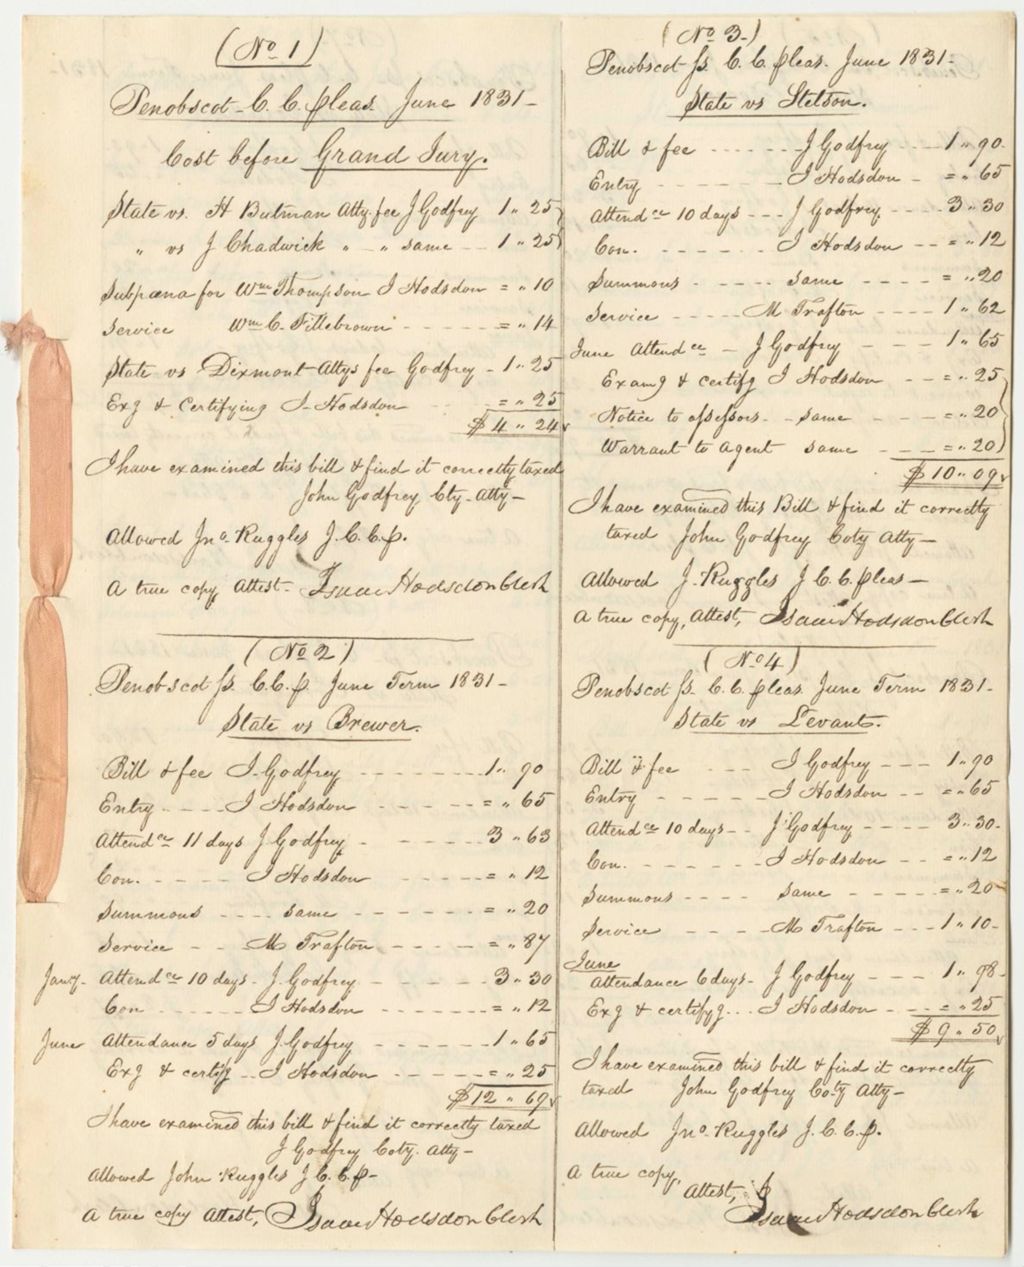 (No 1)
Penobscot - C. C. pleas June 1831 -
Cost before Grand Jury.
State vs. H Butman Atty fee J Godfrey 1 " 25
" vs J Chadwick " " same - - 1 " 25
Subpæna for Wm Thompson I Hodsdon = " 10
Service Wm C. Fillebrown - - - - - - = " 14
State vs Dixmont Attys fee Godfrey - 1 " 25
Exg & Certifying I - Hodsdon = " 25
$ 4 " 24
I have examined this bill & find it correctly taxed
John Godfrey Cty - Atty -
Allowed Jno. Ruggles J. C. C. p.
A true copy Attest - Isaac Hodsdon Clerk
(No 2)
Penobscot ss. C. C. p. June Term 1831 -
State vs Brewer.
Bill & fee J. Godfrey - - - - - - - 1 " 90
Entry - - - - - I Hodsdon - - - - - = " 65
Attendce 11 days J Godfrey - - - - - - 3 " 63
Con. - - - - - - I Hodsdon - - - - - - = " 12
Summons - - - - same - - - - - - = " 20
Service - - M Trafton - - - - - = " 87
Jany - Attendce 10 days - J. Godfrey - - - - - - 3 " 30
Con - - - - - - I Hodsdon - - - - - = " 12
June Attendance 5 days J. Godfrey - - - - - 1 " 65
Exg & certifg - - I Hodsdon - - - - - - = " 25
$ 12 " 69
I have examined this bill & find it correctly taxed
J Godfrey Coty. Atty -
Allowed John Ruggles J. C. C. p -
A true copy Attest, Isaac Hodsdon Clerk
(No 3 -)
Penobscot ss. C. C. pleas. June 1831 -
State vs Stetson.
Bill & fee - - - - - - J Godfrey - - - 1 " 90.
Entry - - - - - - - I Hodsdon - = " 65
Attendce 10 days - - - J Godfrey - - - 3 " 30
Con. - - - - - - - I Hodsdon - - - = " 12
Summons - - - - - same - - - - - = " 20
Service - - - - - M Trafton - - - 1 " 62
June Attendce - J Godfrey - - - 1 " 65
Examg & certifg I Hodsdon - - = " 25
Notice to assessors - - same - - - - = " 20
Warrant to Agent same - - - = " 20
$ 10 " 09
I have examined this Bill & find it correctly
taxed John Godfrey Coty Atty -
Allowed J. Ruggles J C. C. pleas -
A true copy, Attest, Isaac Hodsdon Clerk
(No 4)
Penobscot ss. C. C. pleas June Term 1831 -
State vs Levant.
Bill & fee - - - J Godfrey - - - 1 " 90
Entry - - - - - - I Hodsdon - - = " 65
Attendce 10 days - - J Godfrey - - - - 3 " 30 -
Con. - - - - - - - I Hodsdon - - - = " 12
Summons - - - - same - - - - - = " 20
Service - - - - - M Trafton - - - 1 " 10 -
June
Attendance 6 days - J Godfrey - - - 1 " 98 -
Exg & certifyg . . . I Hodsdon - - - = " 25
$ 9 " 50
I have examined this bill & find it correctly
taxed John Godfrey Coty Atty -
Allowed Jno. Ruggles J. C. C. p.
A true copy,
Attest, Isaac Hodsdon Clerk